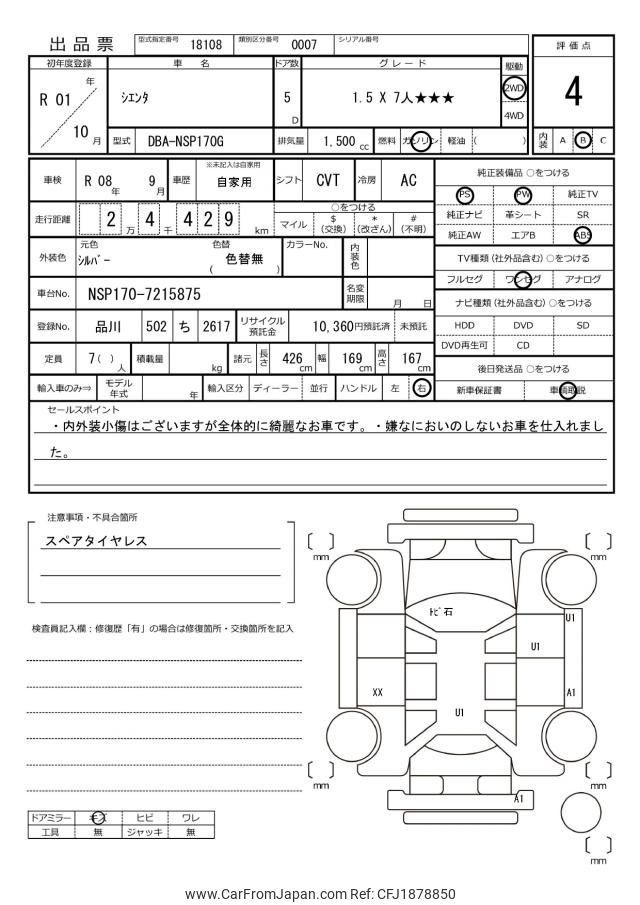 出品票 型式指定番号 18108 類別区分番号 0007 シリアル番号
評価点
初年度登録 車名 ドア数 グレード 駆動
R 01 年 10 月 シエンタ 5 D 1.5 X 7人★★★ 2WD 4WD
4
型式 DBA-NSP170G 排気量 1,500 cc 燃料 ガソリン 軽油 ( )
内装 A B C
車検 R 08 年 9 月 車歴 ※未記入は自家用 自家用 シフト CVT 冷房 AC
純正装備品 ○をつける
PS PW 純正TV
走行距離 2 万 4 千 4 2 9 km
○をつける
マイル $ (交換) * (改ざん) # (不明)
純正ナビ 革シート SR
純正AW エアB ABS
外装色 元色 シルバー 色替 ( 色替無 ) カラーNo. 内装色
TV種類 (社外品含む) ○をつける
フルセグ ワンセグ アナログ
車台No. NSP170-7215875 名変期限 月 日
ナビ種類 (社外品含む) ○をつける
登録No. 品川 502 ち 2617 リサイクル預託金 10,360円預託済 未預託
HDD DVD SD
DVD再生可 CD
定員 7( ) 人 積載量 kg 諸元 長さ 426 cm 幅 169 cm 高さ 167 cm
後日発送品 ○をつける
輸入車のみ⇒ モデル年式 年 輸入区分 ディーラー 並行 ハンドル 左 右
新車保証書 車輌取説
セールスポイント
・内外装小傷はございますが全体的に綺麗なお車です。・嫌なにおいのしないお車を仕入れまし
た。
注意事項・不具合箇所
スペアタイヤレス
検査員記入欄：修復歴「有」の場合は修復箇所・交換箇所を記入
mm
mm
トビ石
U1
U1
XX
A1
U1
mm
mm
A1
mm
ドアミラー キズ ヒビ ワレ
工具 無 ジャッキ 無
www.CarFromJapan.com Ref: CFJ1878850